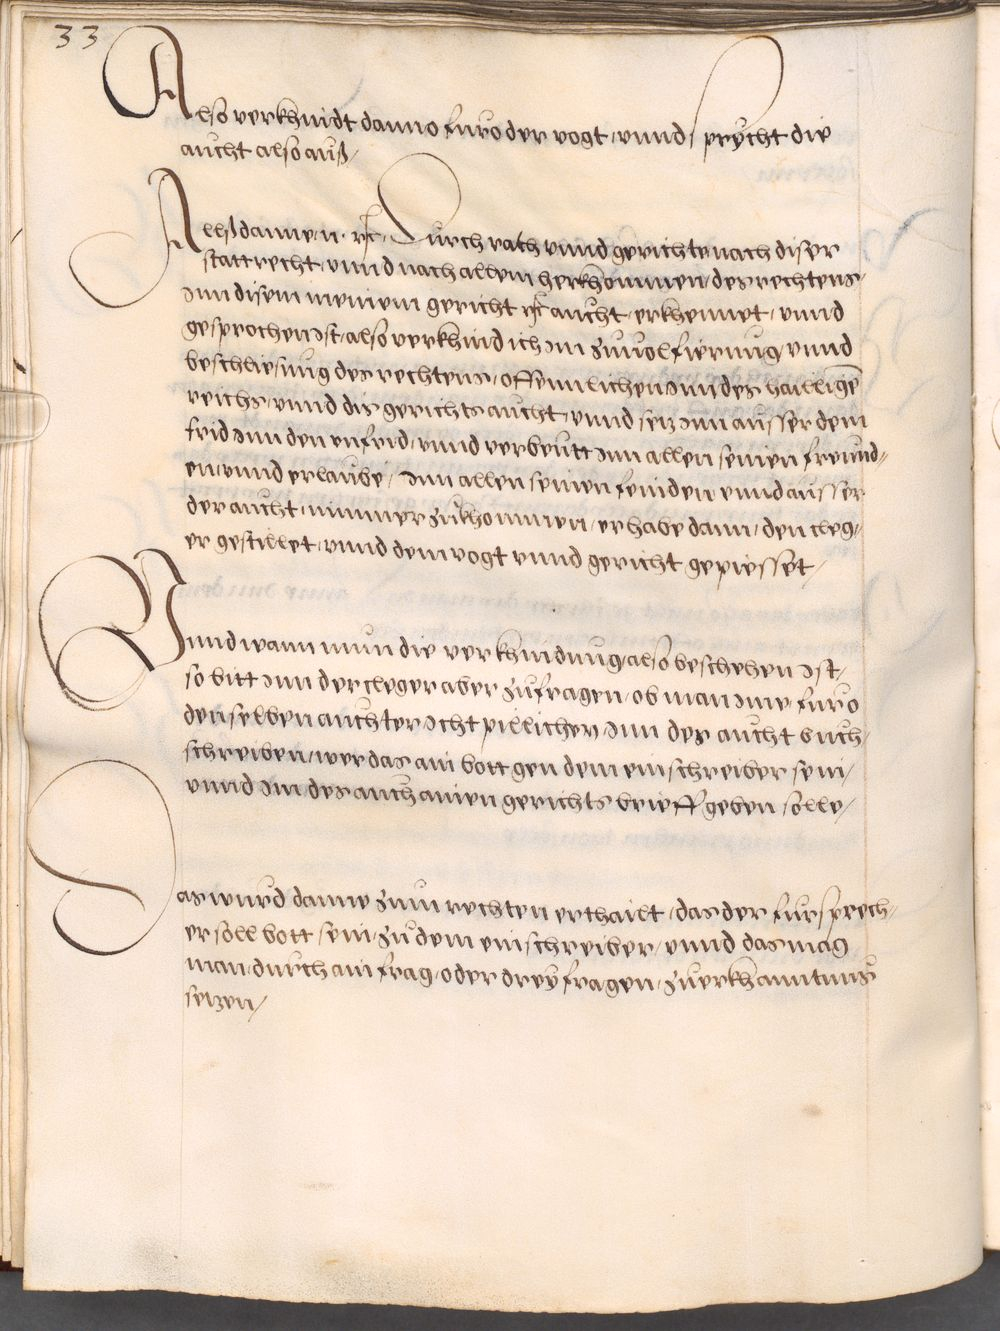 33
Also verkhündt danno furo der vogt, vnnd sprycht die
aucht also auß,
Allßdanne, n. rc. Durch rath vnnd gerichte nach diser
stattrecht, vnnd nach allem herkhommen, des rechtens,
Inn disem meinem gericht rc aucht, erkhennet, vnnd
gesprochen ist, also verkhünd ich in zuuolfierung, vnnd
beschliesung des rechtens, offennlichen Inn des hailligen̄
reichs, vnnd dis gerichts aucht, vnnd setz Inn ausser dem
frid Inn den vnfrid, vnnd verbeutt Inn allen seinen freund„
en, vnnd erlaube, Inn allen seinen feinden vnnd ausser
der aucht, nimmer zukhommen, er habe dann, den cleg„
er gestillet, vnnd dem vogt vnnd gericht gepiesset,
Vnnd wann nnun die verkhündnung, also beschehen ist,
so bitt Inn der cleger aber zufragen, ob man Ime furo
denselben auchter icht pillichen, Inn des aucht buch,
schreiben, wer das ain bott gen dem einschreiber sein,
vnnd Im des auch ainen gerichts brieff geben solle,
Das wurd danne zum rechten erthailt, das der fursprech„
er soll bott sein, zu dem einschreiber, vnnd das mag
man, durch ain frag, oder drey fragen, zuerkhanntnus
setzen,